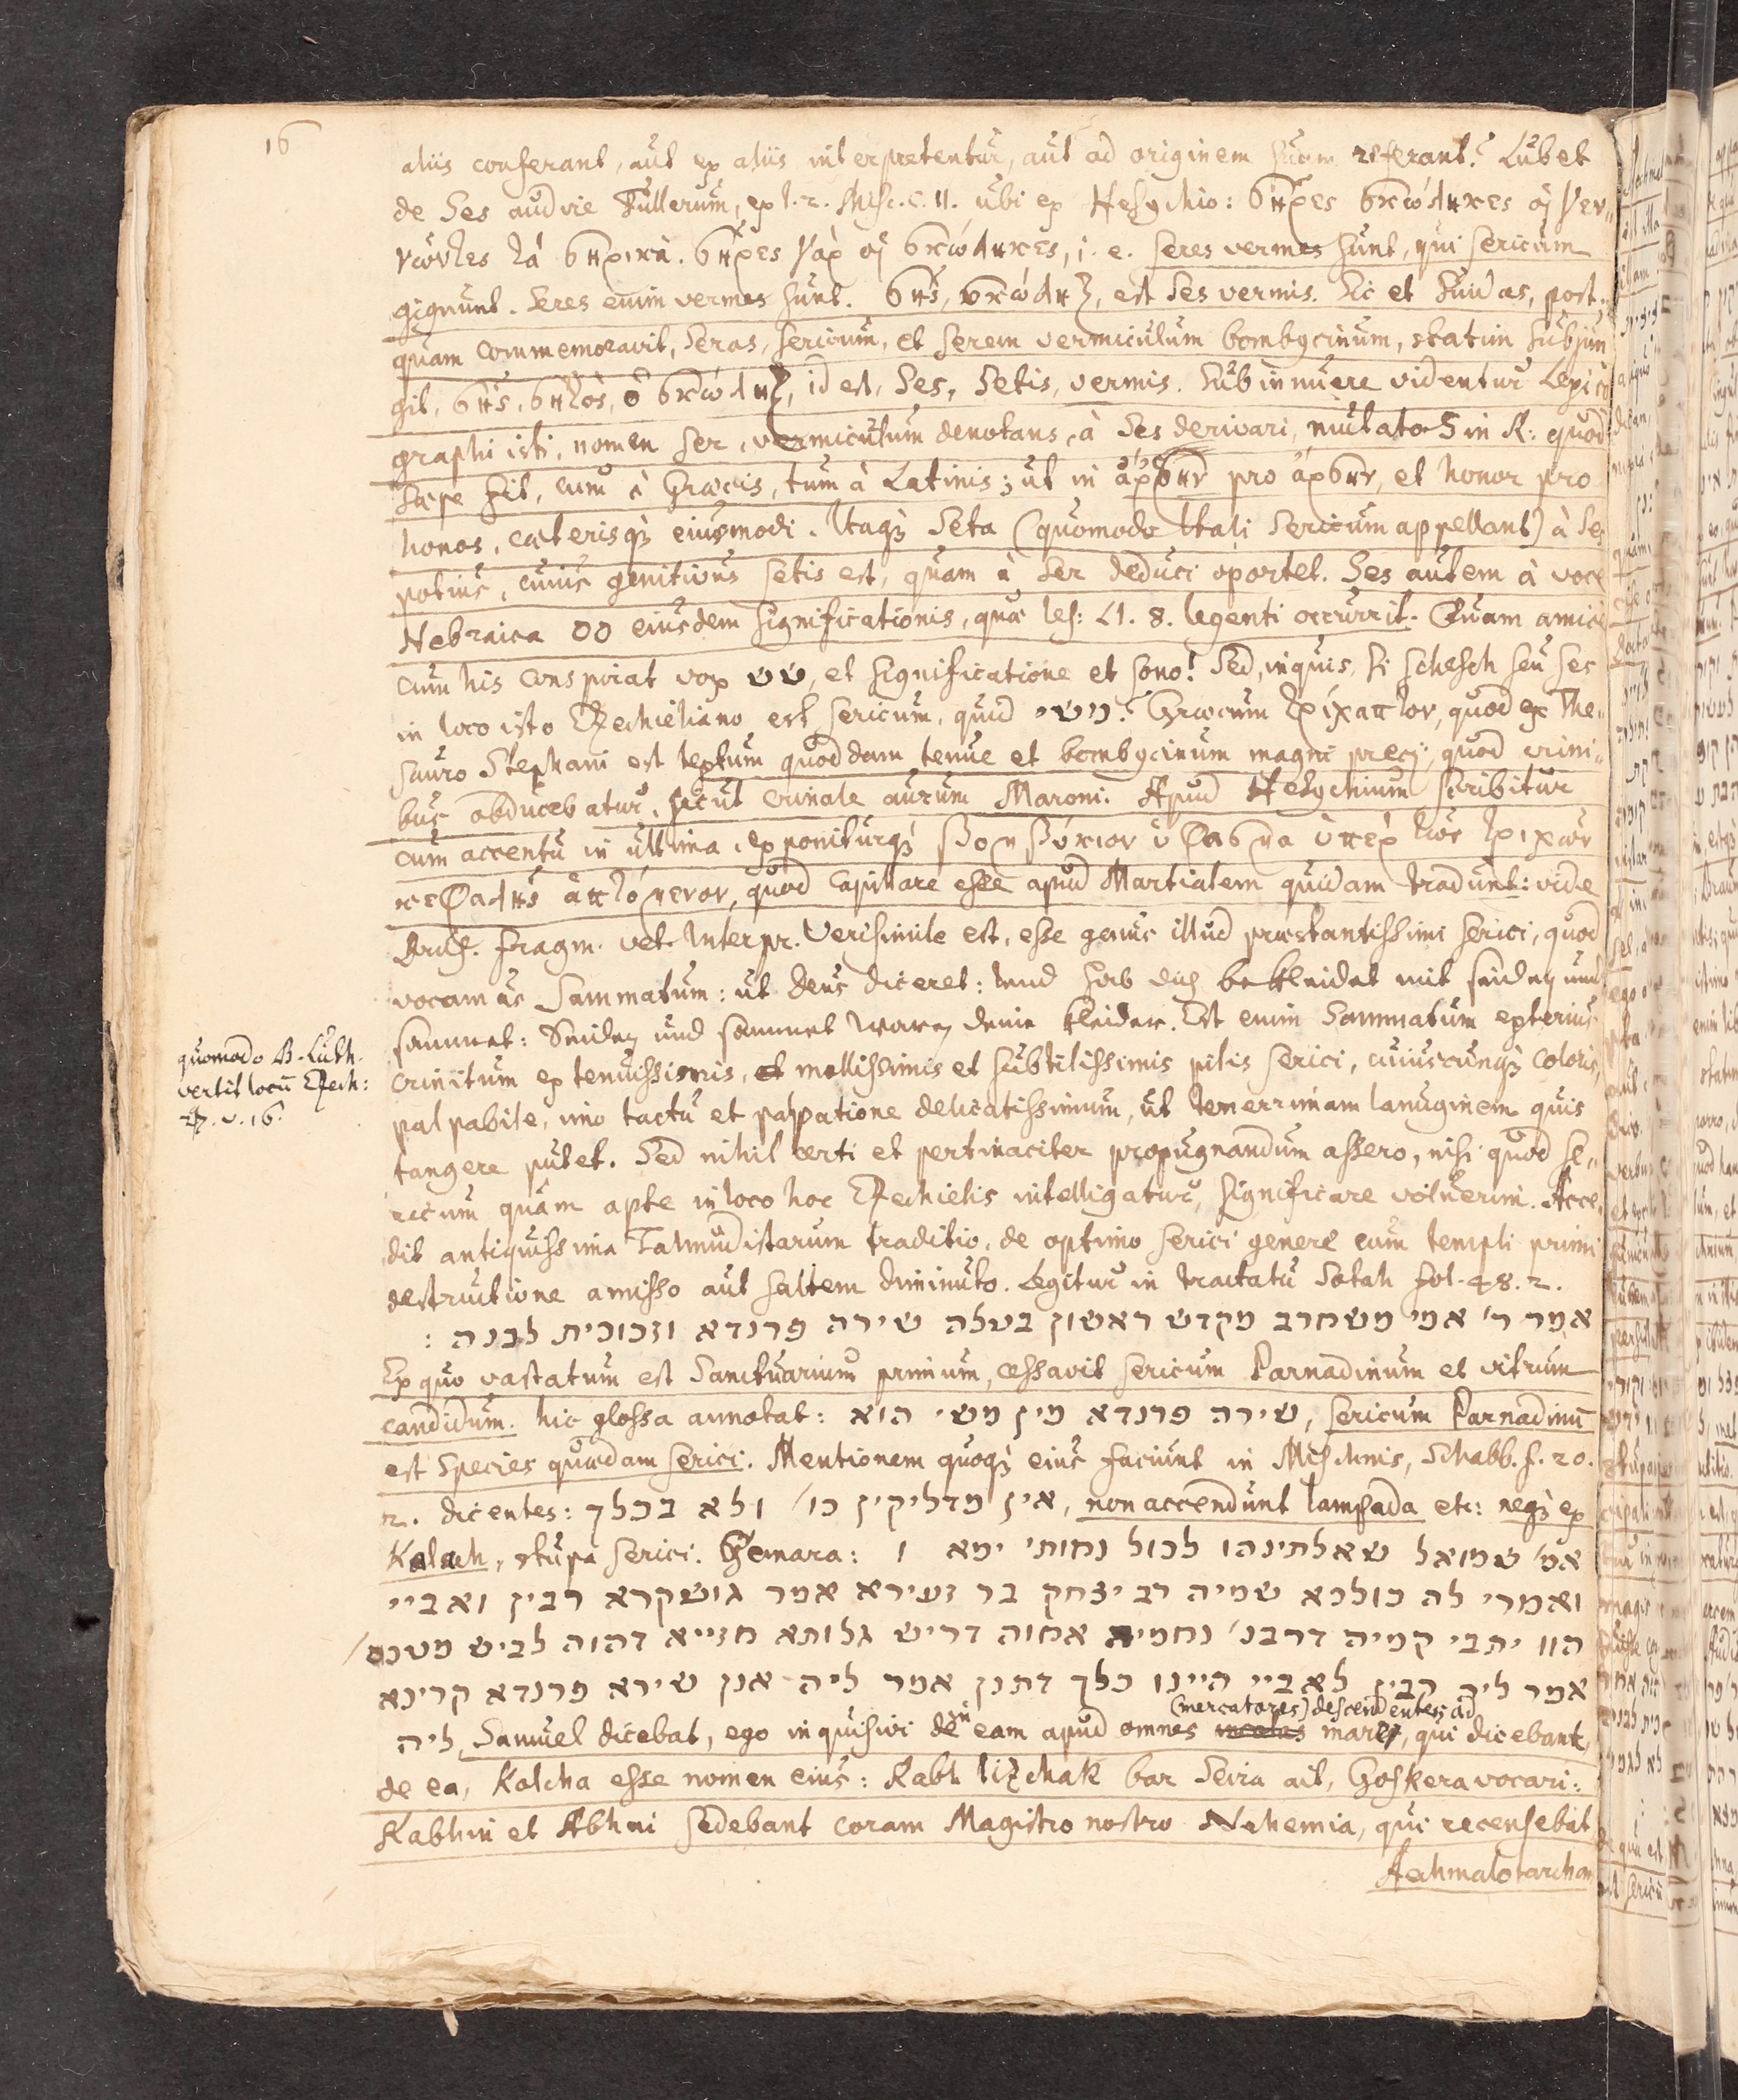 16
aliis conferant, aut ex aliis interpretentur, aut ad originem suam referant? Lubet
de Ses audire Fullerum, ex l. 2. Misc. c. 11. ubi ex Hesychio: σῆρες σκώληκες οἱ γεν-
νῶντες τὰ σηρικά. σῆρες γὰρ οἱ σκώληκες, i. e. seres vermes sunt, qui sericum
gignunt. Seres enim vermes sunt. σὴς, σκώληξ, est Ses vermis. Sic et Suidas, post-
quam commemoravit, Seras, sericum, et serem vermiculum bombycinum, statim subjun
git, σὴς, σητὸς, ὁ σκώληξ, id est, Ses, Setis, vermis. Subinnuere videntur Lexico
graphi isti, nomen Ser, vermiculum denotans, à Ses derivari, mutato S in R: quod
sæpe fit, cum à Græcis, tum à Latinis; ut in ἄῤῥην pro ἄρσην, et honor pro
honos, cæterisq; eiusmodi. Itaq; Seta (quomodo Itali Sericum appellant) à Ses
potius, cuius genitivus setis est, quam à Ser deduci oportet. Ses autem à voce
Hebraica סס eiusdem significationis, quæ Ies: 51. 8. legenti occurrit. Quam amice
cum his conspirat vox שש, et significatione et sono! Sed, inquis, si schesch seu ses
in loco isto Ezechieliano est sericum, quid משי? Græcum τρίχαπτον, quod ex The-
sauro Stephani est textum quoddam tenue et bombycinum magni precij, quod crini-
bus obducebatur, sicut crinale aurum Maroni. Apud Hesychium scribitur
cum accentu in ultima, exponiturq; βομβύκινον ὕφασμα ὑπὲρ τῶν τριχῶν
κεφαλῆς ἁπτόμενον, quod Capillare esse apud Martialem quidam tradunt: vide
Drus. fragm. vet. Interpr. Verisimile est, esse genus illud præstantissimi serici, quod
vocamus Sammatum: ut Deus diceret: Und hab dich bekleidet mit seiden und
sammet: Seiden und sammet waren deine kleider. Est enim Sammatum exterius
crinitum ex tenuissimis, et mollissimis et subtilissimis pilis serici, cuiuscunq; coloris,
quomodo B. Luth.
vertit locū Ezech:
27. v. 16.
palpabile, imo tactu et palpatione delicatissimum, ut tenerrimam lanuginem quis
tangere putet. Sed nihil certi et pertinaciter propugnandum assero, nisi quod se-
ricum quàm apte in loco hoc Ezechielis intelligatur, significare voluerim. Acce-
dit antiquissima Talmudistarum traditio, de optimo serici genere cum templi primi
destructione amisso aut saltem diminuto. Legitur in tractatu Sotah fol. 48. 2.
אמר ר' אמי משחרב מקדש ראשון בטלה שירה פרנדא וזכוכית לבנה :
Ex quo vastatum est Sanctuarium primum, cessavit sericum Parnadinum et vitrum
candidum. hic glossa annotat: שירה פרנדא מין משי הוא, sericum Parnadinū
est Species quædam serici. Mentionem quoq; eius faciunt in Mischnis, Schabb. f. 20.
2. dicentes: אין מדליקין כו' ולא בכלך, non accendunt lampada etc: neq; ex
Kalach, stupa serici. Gemara: אמ' שמואל שאלתינהו לכול נחותי ימא ו
ואמרי לה כולכא שמיה רב יצחק בר זעירא אמר גושקרא רבין ואביי
הוו יתבי קמיה דרבנ' נחמיה אחוה דריש גלותא חזייא דהוה לביש מטכס'
אמר ליה רבין לאביי היינו כלך דתנן אמר ליה אנן שירא פרנדא קרינא
(mercatores) descendentes ad
ליה, Samuel dicebat, ego inquisivi de eam apud omnes mare, qui dicebant
de ea, Kalcha esse nomen eius: Rabh Iizchak bar Seira ait, Goskera vocari:
Rabhin et Abhai sedebant coram Magistro nostro Nehemia, qui recensebat
Aechmalotarcham